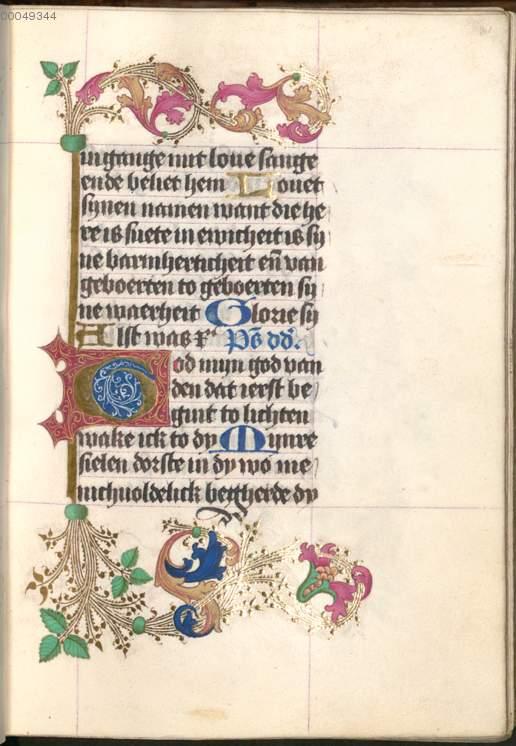 00049344
ingange mit loue sange
ende beliet hem Louet
synen namen want die he
re is suete in ewicheit is sy
ne barmherticheit eñ van
geboerten to geboerten sy
ne waerheit Glorie sy
Alst was
God myn god van
den dat ierst be
gint to lichten
wake ick to dy Mynre
sielen dorste in dy wo me
nichuoldelick begherde dy